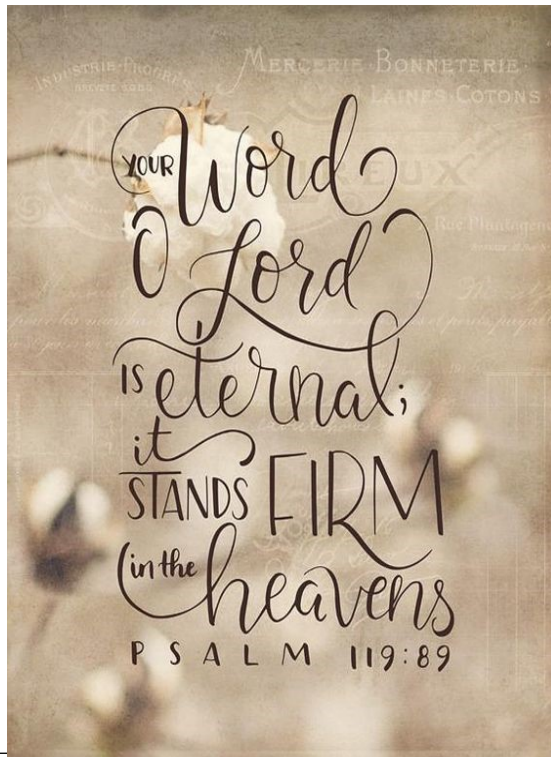 INDUSTRIE-PROGRÈS
MERCERIE BONNETERIE
LAINES COTONS
YOUR Word
O Lord
IS eternal;
it
STANDS FIRM
in the heavens
PSALM 119:89